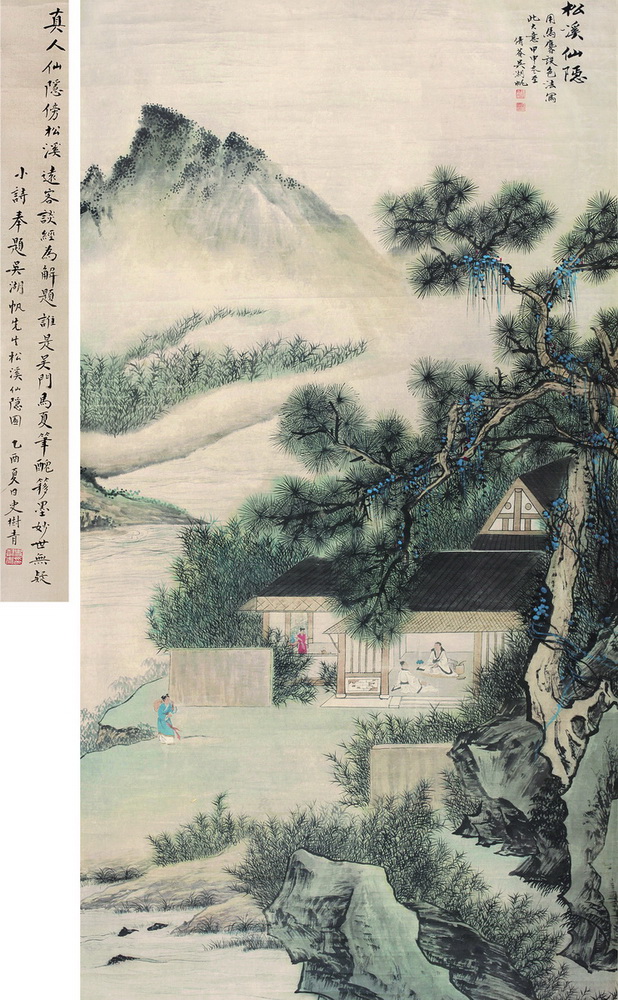 松溪仙隱
用馬麐設色法寫
此大意甲申冬至
倩菴吳湖帆
真人仙隱傍松溪遠客談經為解題誰是吳門馬夏筆醲簃墨妙世無疑
小詩奉題吳湖帆先生松溪仙隱圖 乙酉夏日史樹青